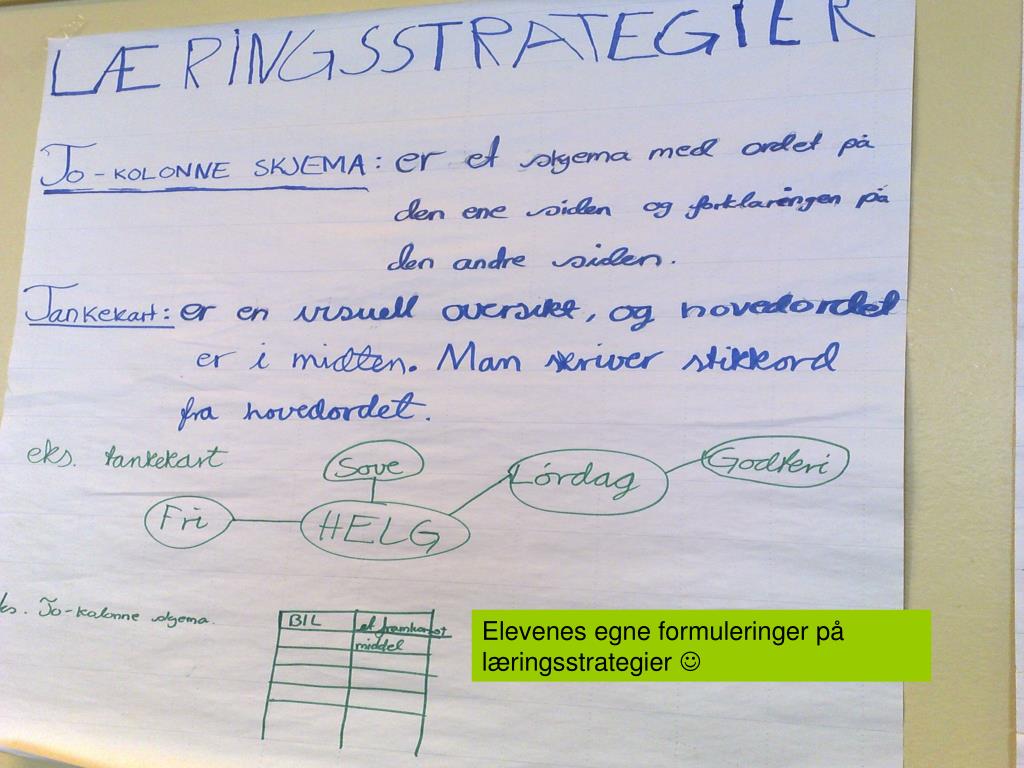 LÆRINGSSTRATEGIER
To-KOLONNE SKJEMA: er et skjema med ordet på
den ene siden og forklaringen på
den andre siden.
Tankekart: er en visuell oversikt, og hovedordet
er i midten. Man skriver stikkord
fra hovedordet.
eks. tankekart
Sove
Lördag
Godteri
Fri
HELG
eks. To-kolonne skjema.
BIL
et framkomst
middel
Elevenes egne formuleringer på
læringsstrategier ☺